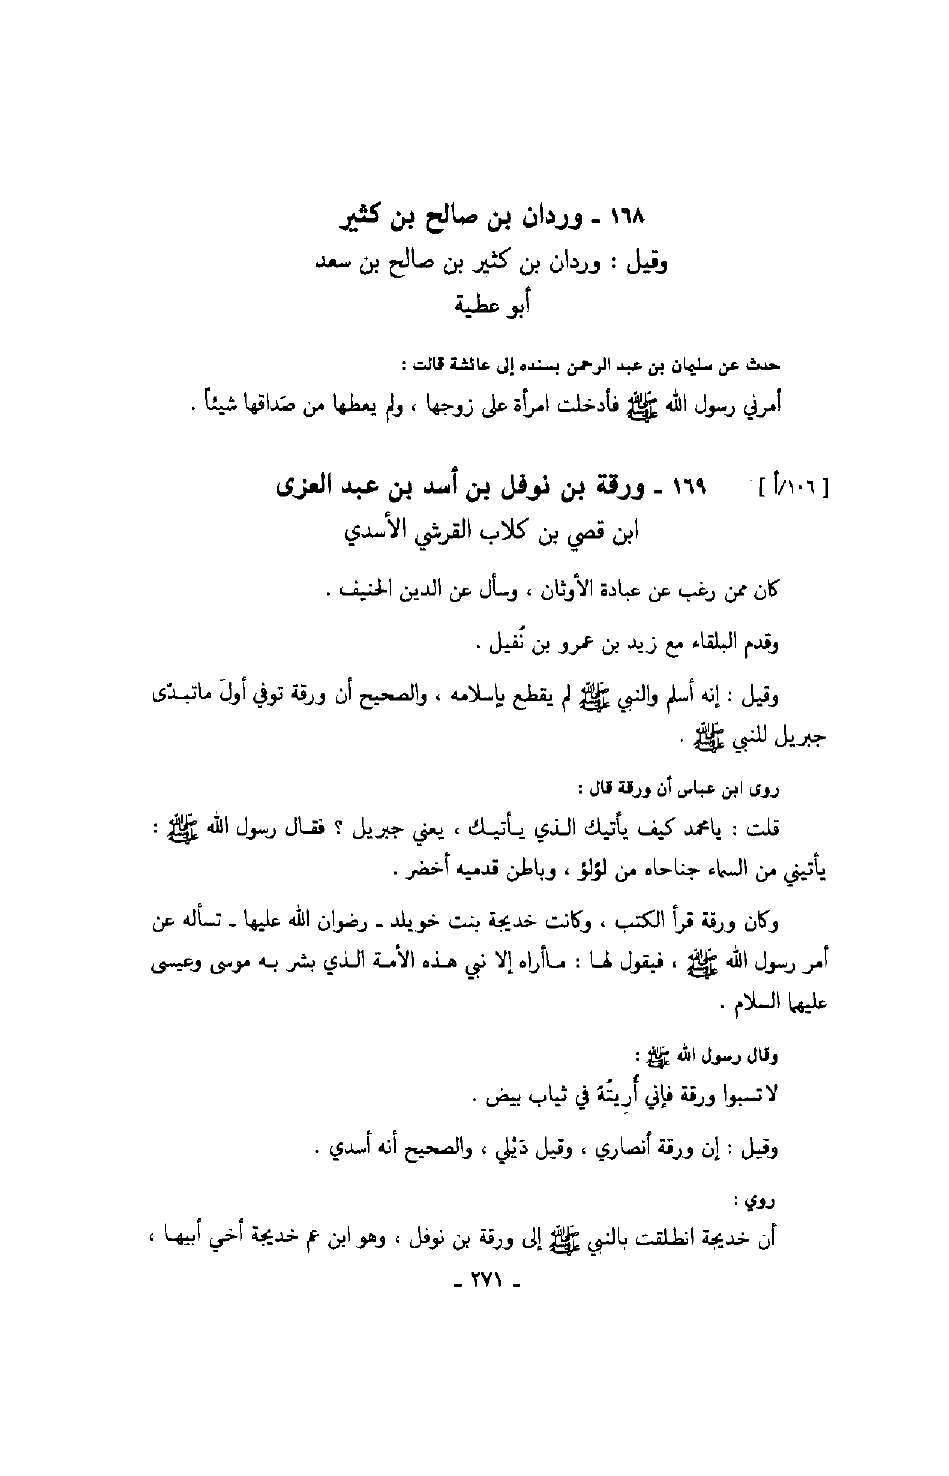 ١٦٨ ـ وردان بن صالح بن كثير
وقيل : وردان بن كثير بن صالح بن سعد
أبو عطية
حدث عن سليمان بن عبد الرحمن بسنده إلى عائشة قالت :
أمرني رسول الله ﷺ فأدخلت امرأة على زوجها ، ولم يعطها من صَداقها شيئاً .
[ ١٠٦/أ ] ١٦٩ ـ ورقة بن نوفل بن أسد بن عبد العزى
ابن قصي بن كلاب القرشي الأسدي
كان ممن رغب عن عبادة الأوثان ، وسأل عن الدين الحنيف .
وقدم البلقاء مع زيد بن عمرو بن نُفيل .
وقيل : إنه أسلم والنبي ﷺ لم يقطع بإسلامه ، والصحيح أن ورقة توفي أولَ ماتبدّى
جبريل للنبي ﷺ .
روى ابن عباس أن ورقة قال :
قلت : يامحمد كيف يأتيك الذي يأتيك ، يعني جبريل ؟ فقال رسول الله ﷺ :
يأتيني من السماء جناحاه من لؤلؤ ، وباطن قدميه أخضر .
وكان ورقة قرأ الكتب ، وكانت خديجة بنت خويلد ـ رضوان الله عليها ـ تسأله عن
أمر رسول الله ﷺ ، فيقول لها : ماأراه إلا نبي هذه الأمة الذي بشر به موسى وعيسى
عليهما السلام .
وقال رسول الله ﷺ :
لا تسبوا ورقة فإني أُرِيتُهُ في ثياب بيض .
وقيل : إن ورقة أنصاري ، وقيل دَيْلي ، والصحيح أنه أسدي .
روي :
أن خديجة انطلقت بالنبي ﷺ إلى ورقة بن نوفل ، وهو ابن عم خديجة أخي أبيها ،
ـ ٢٧١ ـ